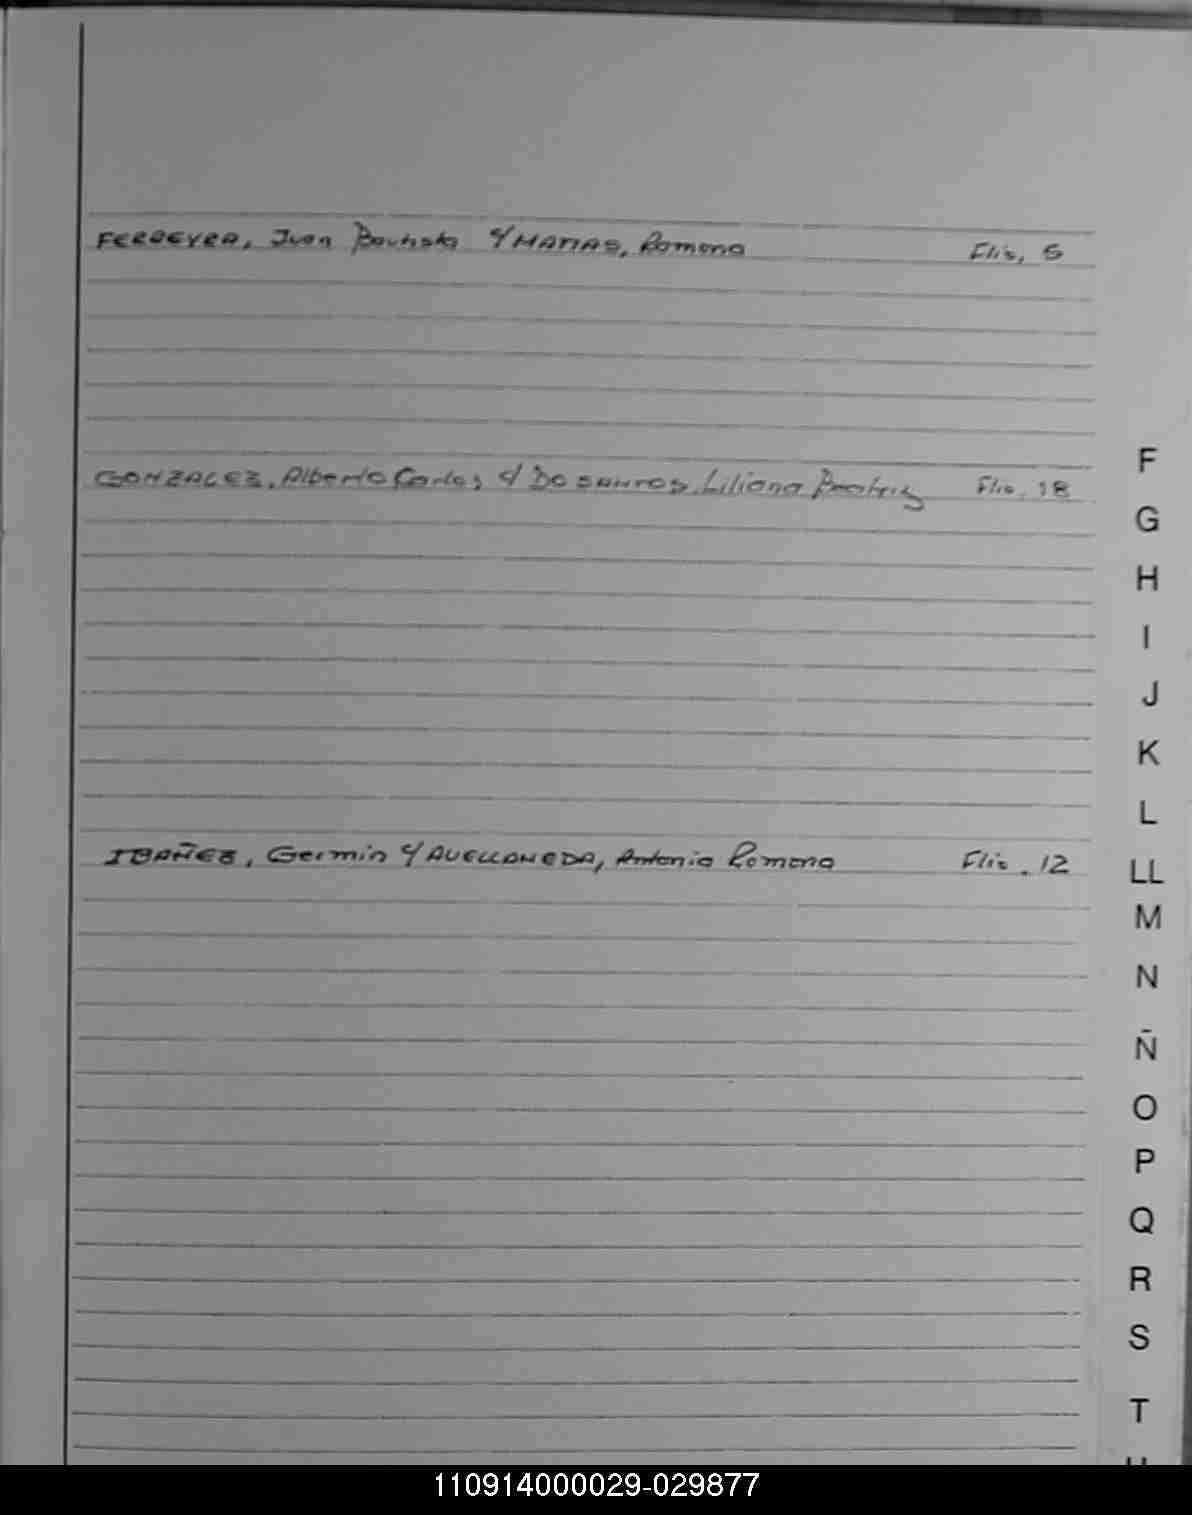 FERREYRA, Juan Bautista y MATIAS, Ramona Flio, 5
GONZALEZ, Alberto Carlos y DO SANTOS, Liliana Beatriz Flio. 18
IBAÑEZ, Germin y AVELLANEDA, Antonia Ramona Flio. 12
F
G
H
I
J
K
L
LL
M
N
Ñ
O
P
Q
R
S
T
110914000029-029877